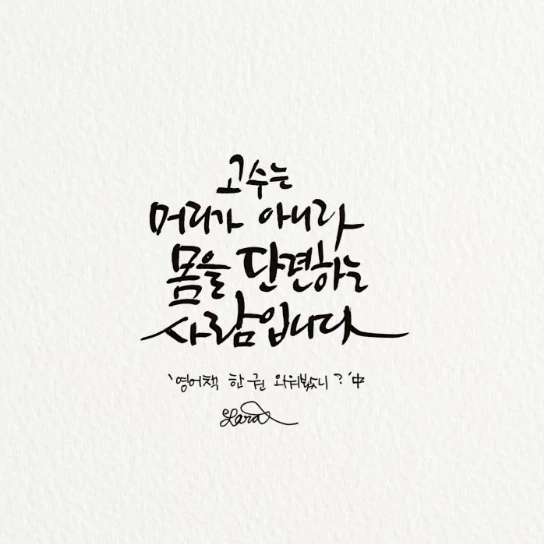 고수는
머리가 아니라
몸을 단련하는
사람입니다
'영어책 한 권 외워봤니?'中
Lara